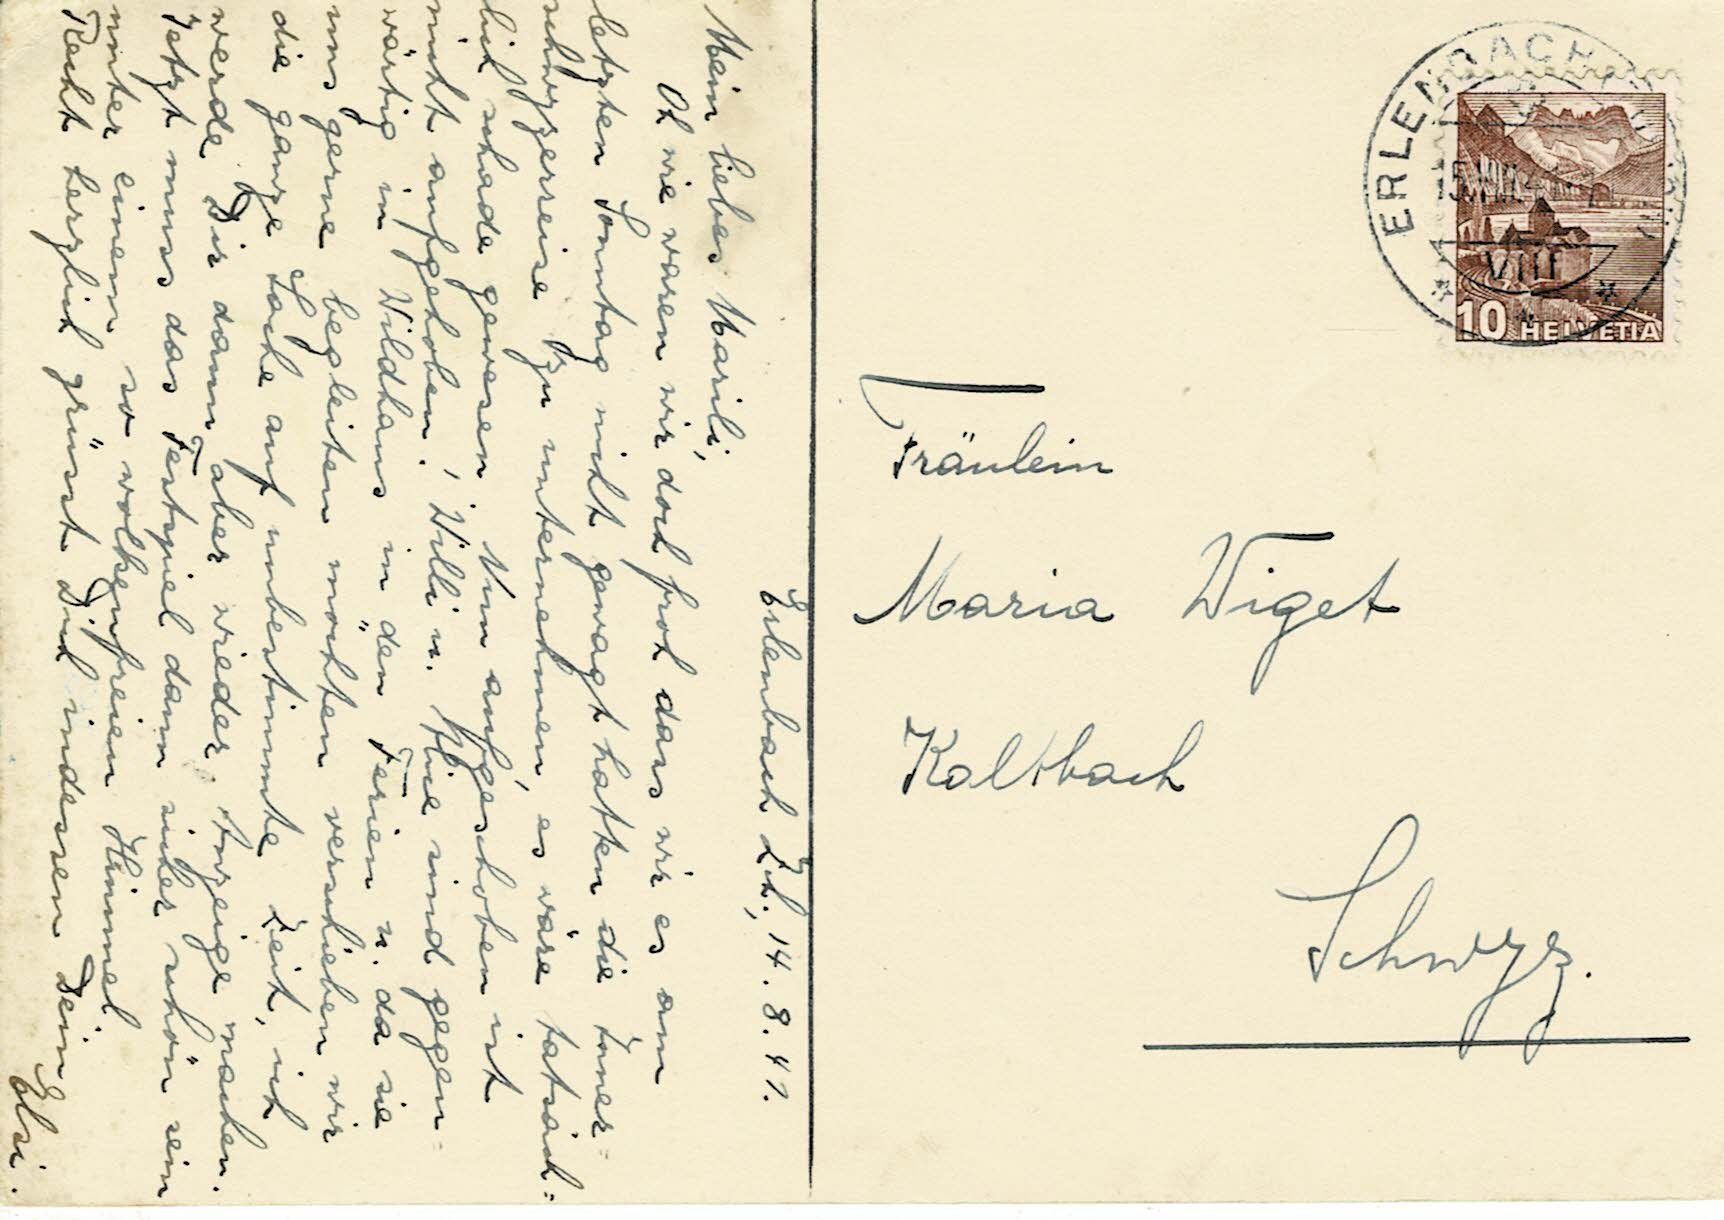 Erlenbach Zh., 14. 8. 41.
Mein liebes Marili,
Oh wie waren wir doch froh dass wir es am
letzten Sonntag nicht gewagt hatten die Inner-
schwyzerreise zu unternehmen, es wäre tatsäch-
lich schade gewesen. Nun aufgeschoben ist
nicht aufgehoben! Willi u. sind gegen-
wärtig in Wildhaus in den Ferien u. da sie
uns gerne begleiten möchten verschieben wir
die ganze Sache auf unbestimmte Zeit, ich
werde Dir dann aber wieder Anzeige machen.
Jetzt muss das Festspiel dann sicher schön sein
unter einem so wolkenfreien Himmel.
Recht herzlich grüsst Dich indessen Dein
Elsi.
ERLENBACH
15.VIII.
VIII
10 HELVETIA
Fräulein
Maria Wiget
Kaltbach
Schwyz.